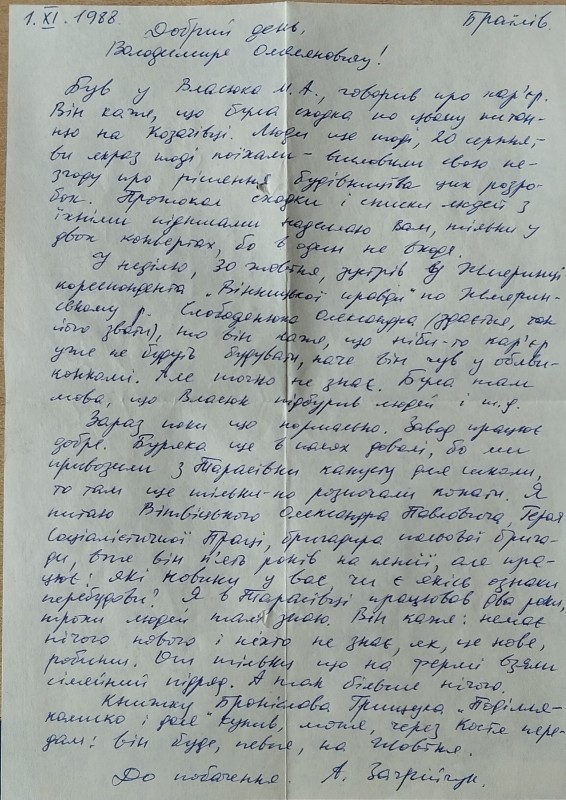 1.XI.1988. Браїлів.
Добрий день,
Володимире Омеляновичу!
Був у Власюка М.А., говорив про кар'єр.
Він каже, що була сходка по цьому питан-
ню на Козачівці. Люди ще тоді, 20 серпня, –
ви якраз тоді поїхали – висловили свою не-
згоду про рішення будівництва цих розро-
бок. Протокол сходки і списки людей з
їхніми підписами надсилаю Вам, тільки у
двох конвертах, бо в один не входе.
У неділю, 30 жовтня, зустрів у Жмеринці
кореспондента „Вінницької правди" по Жмерин-
ському р. Слободенюка Олександра (здається, так
його звати), то він каже, що ніби-то кар'єр
уже не будуть будувати, наче він чув у облви-
конкомі. Але точно не знає. Була там
мова, що Власюк підбурив людей і т.д.
Зараз поки що нормально. Завод працює
добре. Буряка ще в полях доволі, бо ми
привозили з Тарасівки капусту для школи,
то там ще тільки-но розпочали копати. Я
питаю Вітвіцького Олександра Павловича, Героя
Соціалістичної Праці, бригадира польової брига-
ди, вже він п'ять років на пенсії, але пра-
цює: які новини у вас, чи є якісь ознаки
перебудови? Я в Тарасівці працював два роки,
трохи людей там знаю. Він каже: немає
нічого нового і ніхто не знає, як, це нове,
робити. От тільки що на фермі взяли
сімейний підряд. А так більше нічого.
Книжку Броніслава Грищука „Поділля-
колишко і доле" купив, може, через Костя пере-
дам: він буде, певне, на Жовтня.
До побачення. А. Загрійчук.